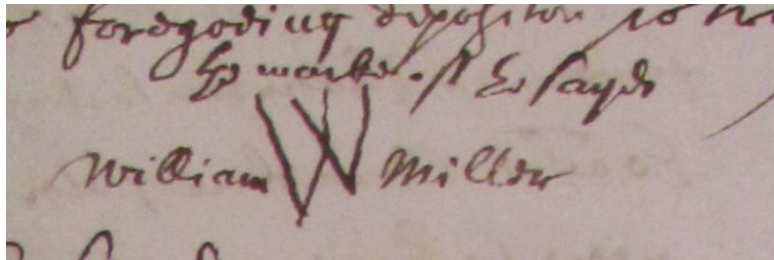 foregoeing deposition is
The marke of the sayd
William W Miller